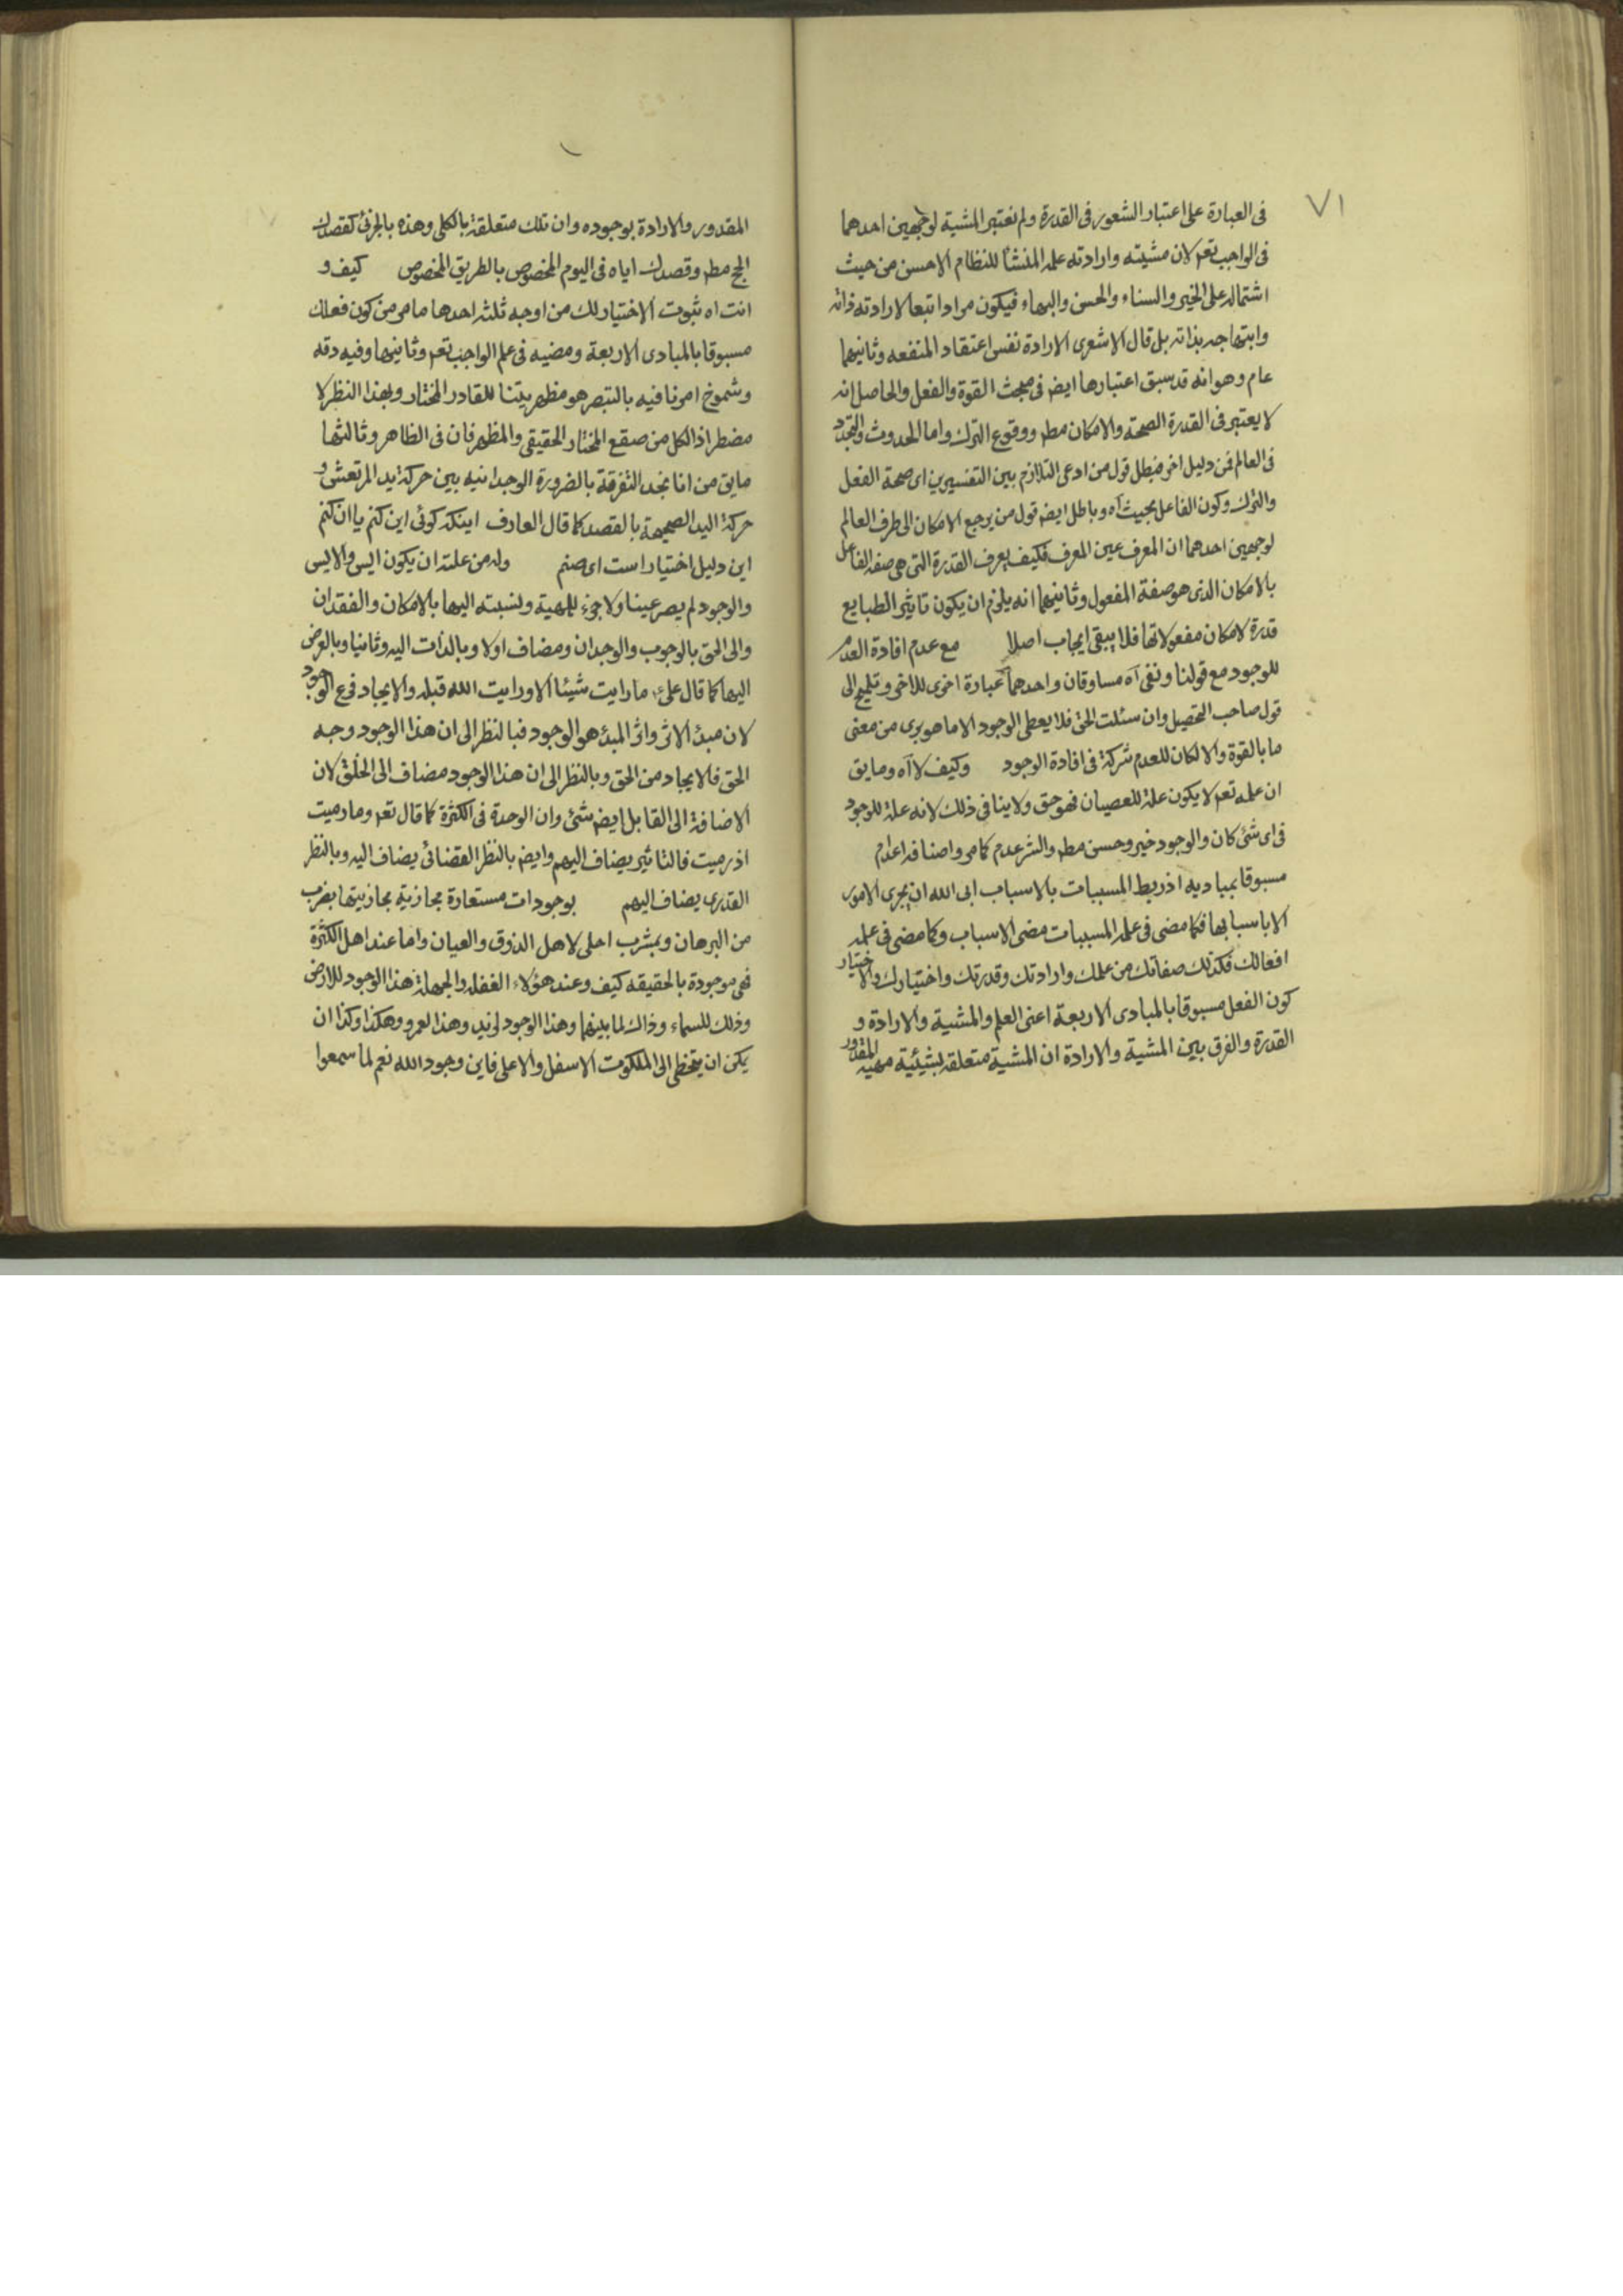 ٧١
فى العبارة على اعتبار الشعور فى القدرة ولم نعتبر المشية لوجهين احدهما
فى الواجب تعم لان مشيته وارادته علمه المنشأ للنظام الاحسن من حيث
اشتماله على الخير والسناء والحسن والبهاء فيكون مرادا تبعا لارادته ذاته
وابتهاجه بذاته بل قال الاشعرى الارادة نفس اعتقاد المنفعه وثانيهما
عام وهو انه قد سبق اعتبارها ايضا فى مبحث القوة والفعل والحاصل انه
لا يعتبر فى القدرة الصحة والامكان مطم ووقوع الترك واما الحدوث والتجدد
فى العالم فمن دليل اخر فبطل قول من ادعى التلازم بين التفسيرين اى صحة الفعل
والترك وكون الفاعل بحيث آه وباطل ايضا قول من يرجع الامكان الى طرف العالم
لوجهين احدهما ان المعرف عين المعرف فكيف يعرف القدرة التى هى صفة الفاعل
بالامكان الذى هو صفة المفعول وثانيهما انه يلزم ان يكون تاثير الطبايع
قدرة لامكان مفعولاتها فلا يبقى ايجاب اصلا مع عدم افادة العدم
للوجود مع قولنا ونفى آه مساوقان واحدهما عبارة اخرى للاخر وتلميح الى
قول صاحب التحصيل وان سئلت الحق فلا يعطى الوجود الا ما هو برى من معنى
ما بالقوة والا لكان للعدم شركة فى افادة الوجود وكيف لا آه وما يق
ان علمه تعم لا يكون علة للعصيان فهو حق ولا ينافى ذلك لانه علة للوجود
فى اى شئ كان والوجود خير وحسن مطم والشر عدم كما مر واصنافه اعدام
مسبوقا بمباديه اذ ربط المسببات بالاسباب ابى الله ان يجرى الامور
الا باسبابها فكما مضى فى علمه المسببات مضى الاسباب وكما مضى فى علمه
افعالك فكذلك صفاتك من علمك وارادتك وقدرتك واختيارك والاختيار
كون الفعل مسبوقا بالمبادى الاربعة اعنى العلم والمشية والارادة و
القدرة والفرق بين المشية والارادة ان المشية متعلقة بشيئية مهية المقدور
المقدور والارادة بوجوده وان تلك متعلقة بالكلى وهذه بالجزئى كقصدك
الحج مطم وقصدك اياه فى اليوم المخصوص بالطريق المخصوص كيف و
انت اه ثبوت الاختيار لك من اوجه ثلثة احدها ما مر من كون فعلك
مسبوقا بالمبادى الاربعة ومضيه فى علم الواجب تعم وثانيها وفيه دقه
وشموخ امرنا فيه بالتبصر هو مظهريتنا للقادر المختار وبهذا النظر لا
مضطر اذ الكل من صقع المختار الحقيقى والمظهر فان فى الظاهر وثالثها
ما يق من انا نجد التفرقة بالضرورة الوجدانيه بين حركة يد المرتعش و
حركة اليد الصحيحة بالقصد كما قال العارف اينكه كوئى اين كنم يا ان كنم
اين دليل اختيار است اى صنم وله من علته ان يكون ايس والايس
والوجود لم يصر عينا ولا جزء للمهية ونسبته اليها بالامكان والفقدان
والى الحق بالوجوب والوجدان ومضاف اولا وبالذات اليه وثانيا وبالعرض
اليها كما قال علىؑ ما رايت شيئا الا ورايت الله قبله والايجاد فرع الوجود
لان مبدأ الاثر واثر المبدء هو الوجود فبالنظر الى ان هذا الوجود وجه
الحق فالايجاد من الحق وبالنظر الى ان هذا الوجود مضاف الى الخلق لان
الاضافة الى القابل ايضا شئ وان الوحدة فى الكثرة كما قال تعم وما رميت
اذ رميت فالتاثير يضاف اليهم وايضا بالنظر القضائى يضاف اليه وبالنظر
القدرى يضاف اليهم بوجودات مستعارة مجازية مجازيتها بضرب
من البرهان وبمشرب احلى لاهل الذوق والعيان واما عند اهل الكثرة
فهى موجودة بالحقيقه كيف وعند هؤلاء الغفلة والجهلة هذا الوجود للارض
وذلك للسماء وذاك لما بينهما وهذا الوجود لزيد وهذا لعمرو وهكذا وكذا ان
يكن ان يتخطى الى الملكوت الاسفل والاعلى فاين وجود الله نعم لما سمعوا